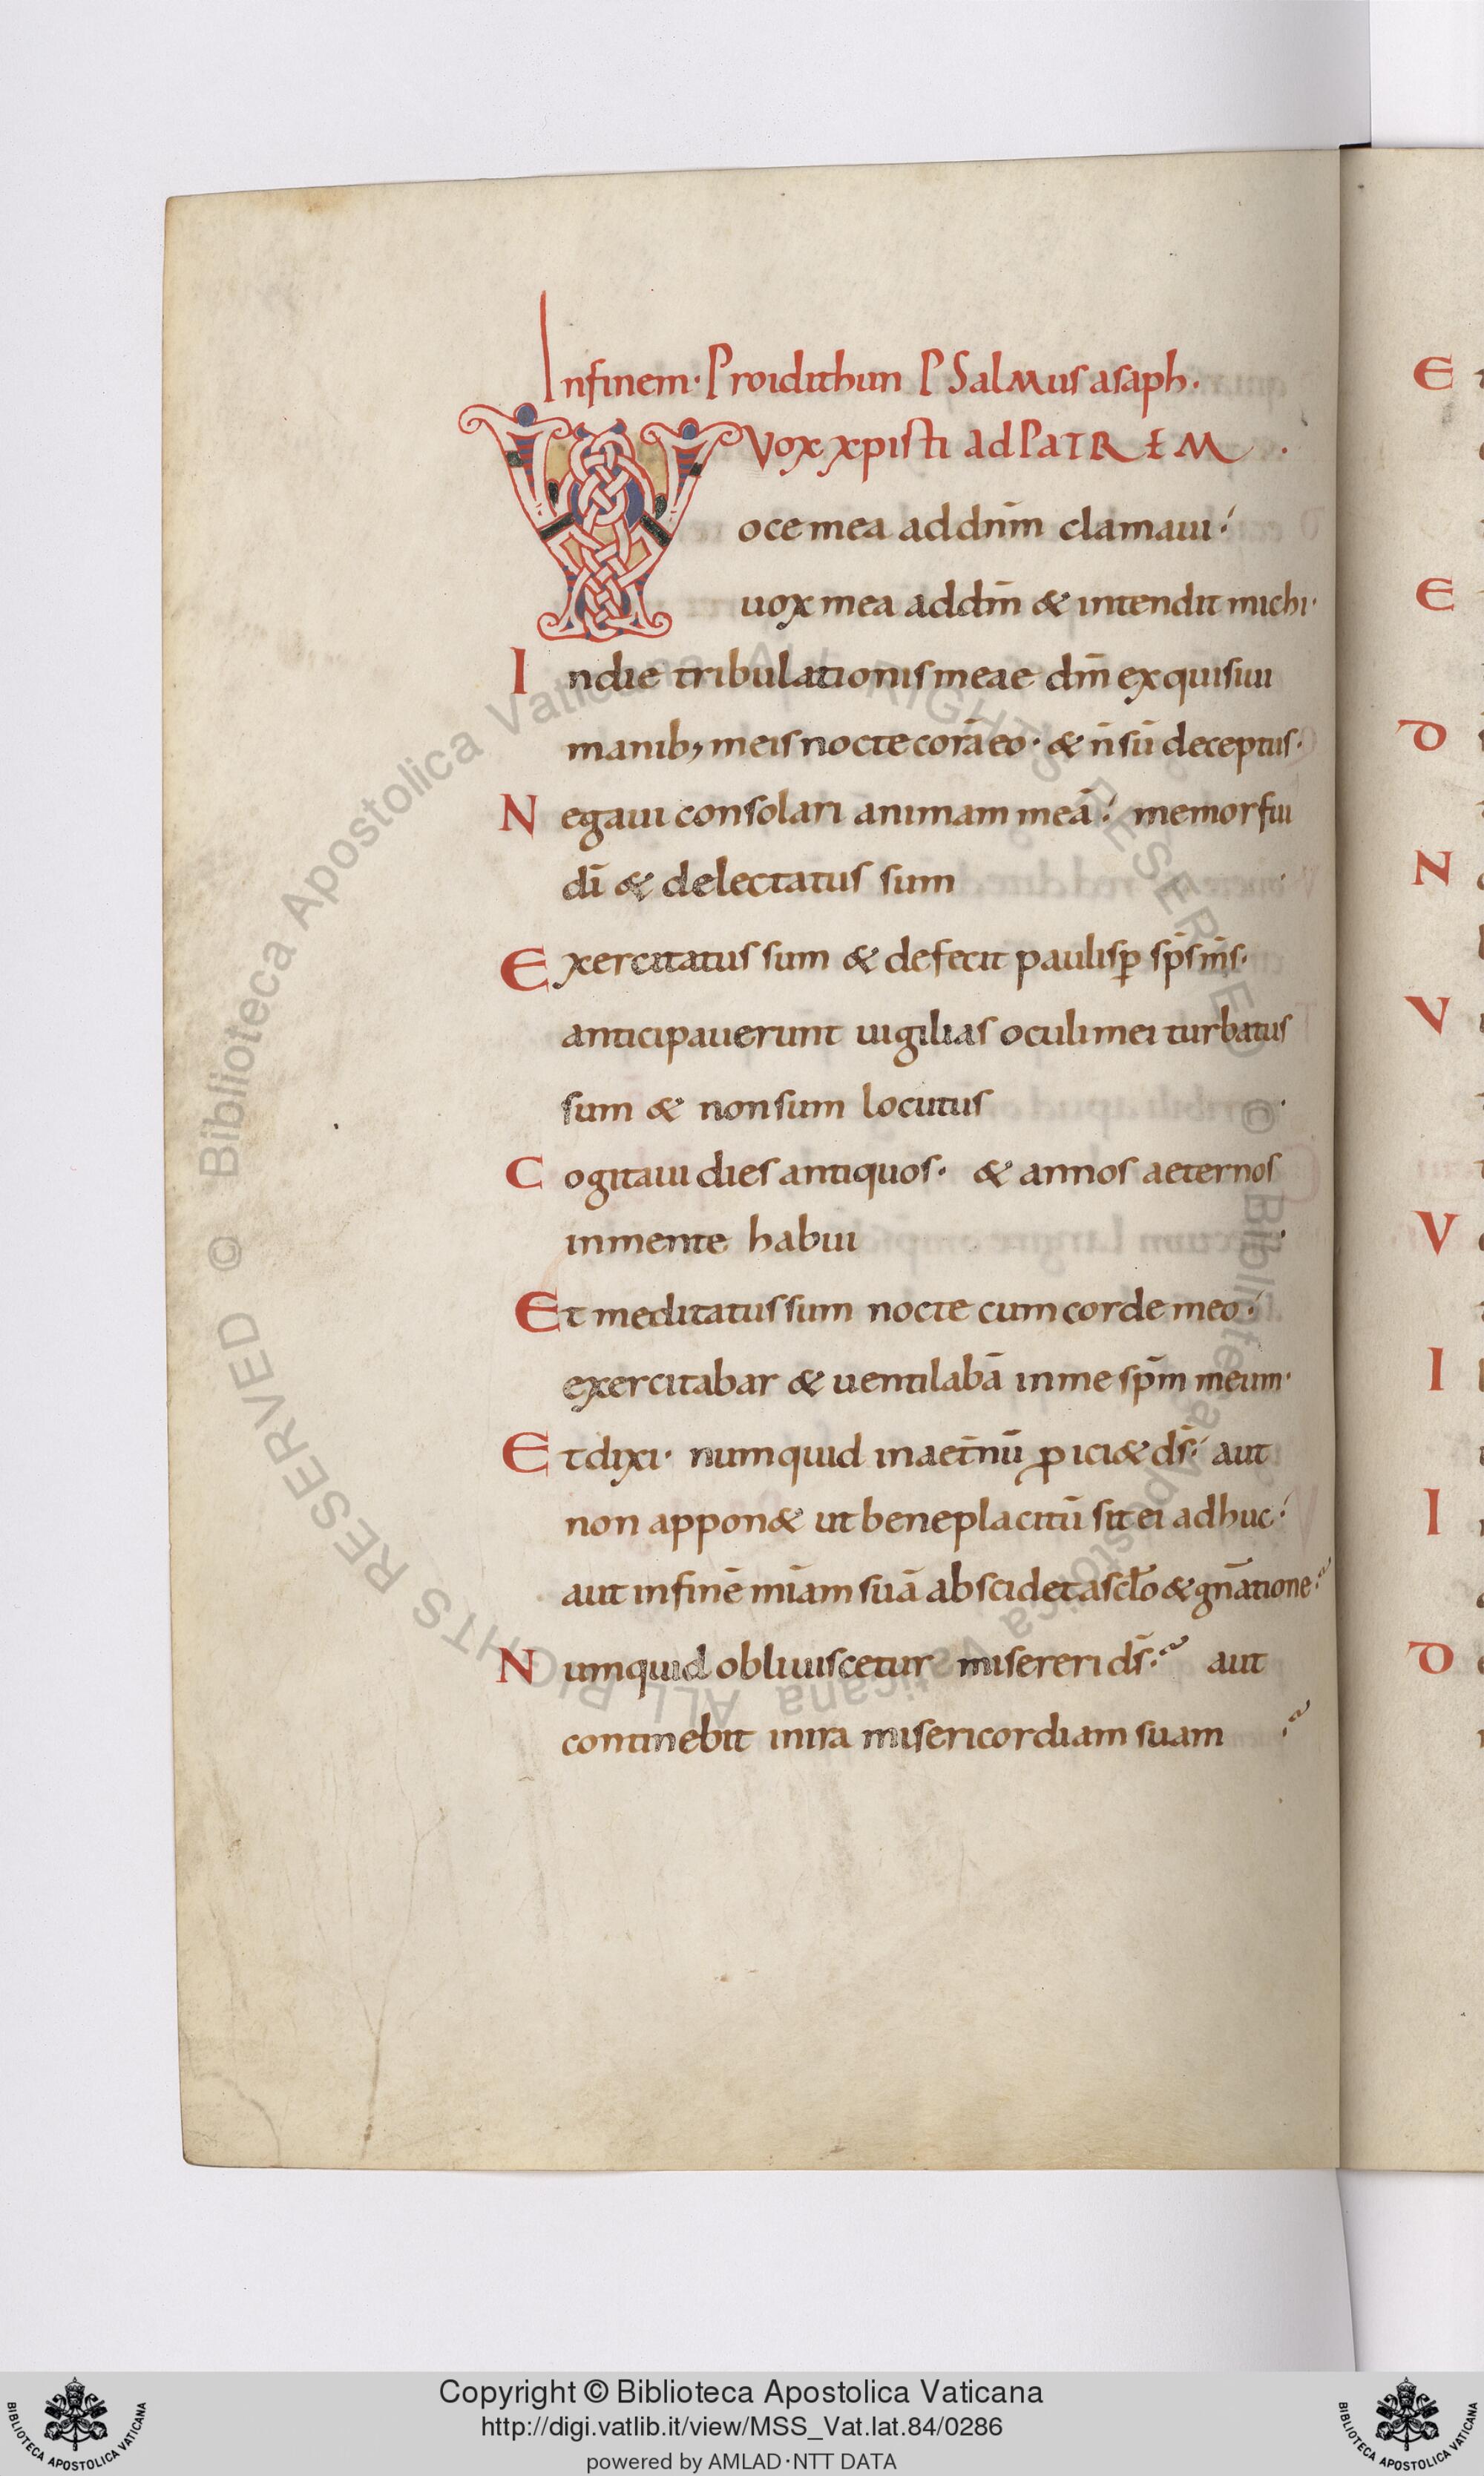 Infinem· Proidithun PSalmus asaph·
Vox xpisti ad PaTREM ·
Voce mea ad dnm̄ clamaui·
uox mea ad dm̄ & intendit michi·
Indie tribulationis meae dm̄ exquisiui
manib; meis nocte corā eo· & n̄ sū deceptus·
Negaui consolari animam meā· memor fui
dī & delectatus sum ·
Exercitatus sum & defecit paulisꝑ sp̄s m̄s·
anticipauerunt uigilias oculi mei turbatus
sum & non sum locutus ·
Cogitaui dies antiquos· & annos aeternos
inmente habui ·
Et meditatus sum nocte cum corde meo·
exercitabar & uentilabā in me sp̄m meum·
Et dixi· numquid in aet̄nū ꝓiciet ds̄· aut
non appon& ut beneplacitū sit ei adhuc·
aut infinē mīam suā abscidet a scl̄o & gn̄atione·
Numquid obliuiscetur misereri ds̄· aut
continebit in ira misericordiam suam ·
E
E
D
N
V
V
I
I
D
© Biblioteca Apostolica Vaticana ALL RIGHTS RESERVED
© Biblioteca Apostolica Vaticana ALL RIGHTS RESERVED
Copyright © Biblioteca Apostolica Vaticana
http://digi.vatlib.it/view/MSS_Vat.lat.84/0286
powered by AMLAD·NTT DATA
BIBLIOTECA APOSTOLICA VATICANA
BIBLIOTECA APOSTOLICA VATICANA